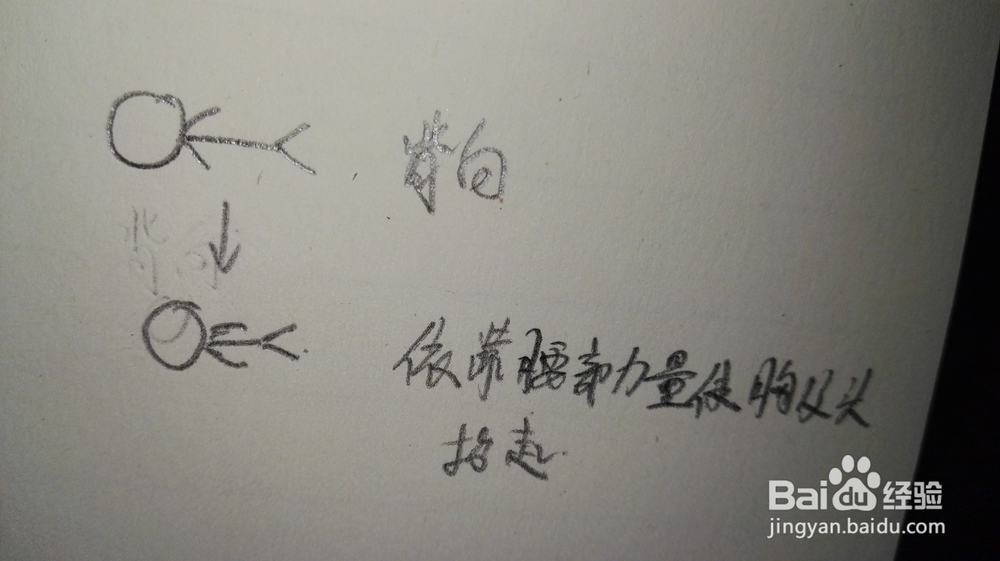 背向
依靠腰部力量使胸以头
抬起.
Baidu经验
jingyan.baidu.com